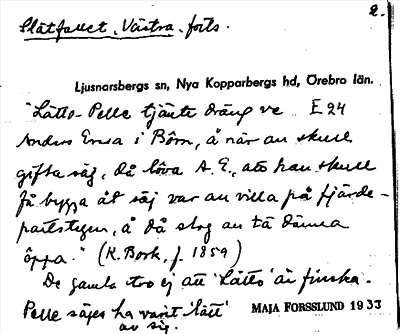 2.
Slätfallet, Västra, forts.
Ljusnarsbergs sn, Nya Kopparbergs hd, Örebro län.
"Lätto-Pelle tjänte dräng ve E 24
Anders Ersa i Börn, å när an skull
gifta säj, då lova A. E., att han skull
få bygga åt säj var an villa på fjärde-
partstegen, å då slog an tå denna
öppa." (K. Bork, f. 1859)
De gamla tro ej att 'Lätto' är finska.
Pelle säges ha varit 'lätt'
av sig.
MAJA FORSSLUND 1933